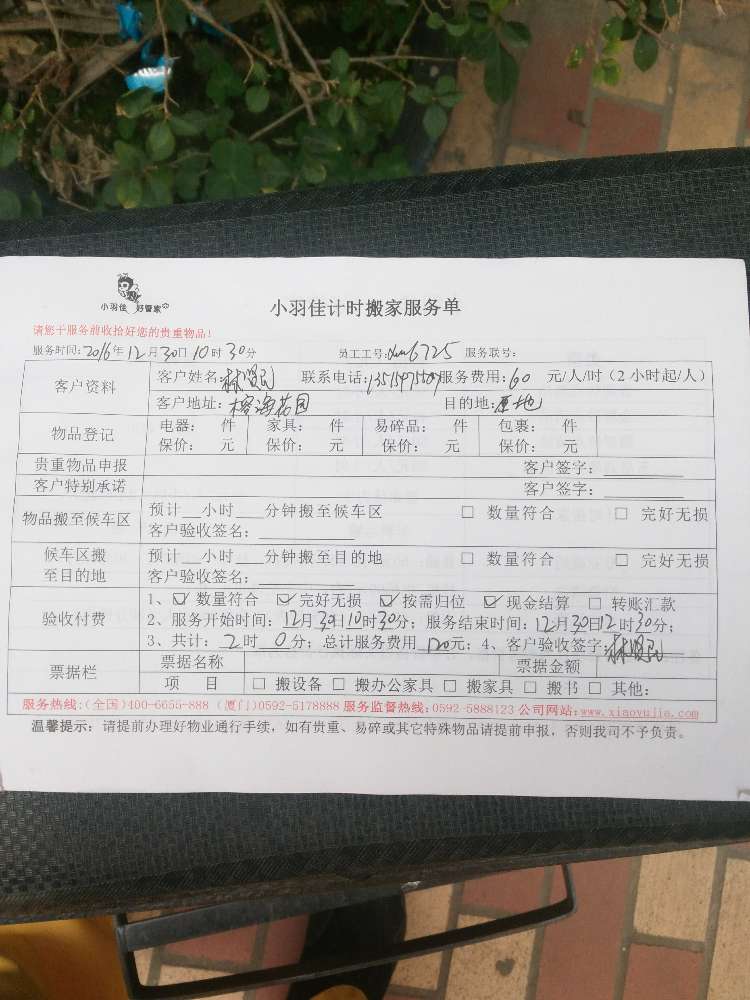 小羽佳 好管家
小羽佳计时搬家服务单
请您于服务前收拾好您的贵重物品!
服务时间:2016年12月30日10时30分 员工工号:6725 服务联号:
客户资料 客户姓名:林 联系电话: 服务费用:60 元/人/时(2小时起/人)
客户地址:榕海花园 目的地:原地
物品登记 电器: 件 家具: 件 易碎品: 件 包裹: 件
保价: 元 保价: 元 保价: 元 保价: 元
贵重物品申报 客户签字:
客户特别承诺 客户签字:
物品搬至候车区 预计__小时___分钟搬至候车区 □ 数量符合 □ 完好无损
客户验收签名:
候车区搬至目的地 预计__小时___分钟搬至目的地 □ 数量符合 □ 完好无损
客户验收签名:
验收付费 1、☑ 数量符合 ☑ 完好无损 ☑ 按需归位 ☑ 现金结算 □ 转账汇款
2、服务开始时间:12月30日10时30分;服务结束时间:12月30日12时30分;
3、共计:2时0分;总计服务费用120元;4、客户验收签字:林
票据栏 票据名称 票据金额
项 目 □ 搬设备 □ 搬办公家具 □ 搬家具 □ 搬书 □ 其他:
服务热线:(全国)400-6655-888 (厦门)0592-5178888 服务监督热线:0592-5888123 公司网站:www.xiaoyujia.com
温馨提示:请提前办理好物业通行手续,如有贵重、易碎或其它特殊物品请提前申报,否则我司不予负责。